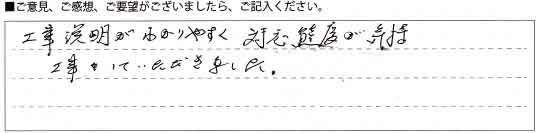 ■ご意見、ご感想、ご要望がございましたら、ご記入ください。
工事説明がわかりやすく 対応態度が気持
工事をしていただきました。